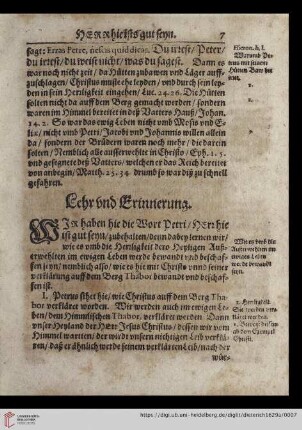 HERR hie ists gut seyn. 7
sagt: Erras Petre, nescis quid dicas. Du irrest / Peter /
du irrest / du weist nicht / was du sagest. Dann es
war noch nicht zeit / da Hütten zubawen und Läger auff-
zuschlagen / Christus muste ehe leyden / und durch sein ley-
den in sein Herligkeit eingehen / Luc. 24. 26. Die Hütten
solten nicht da auff dem Berg gemacht werden / sondern
waren im Himmel bereitet in deß Vatters Hauß / Johan.
14. 2. So war das ewig Leben nicht und Mosis und E-
liæ / nicht und Petri / Jacobi und Johannis willen allein
da / sondern der Brüdern waren noch mehr / die darein
solten / Nemblich alle ausserwehlte in Christo / Eph. 1. 3.
und gesegnete deß Vatters / welchen er das Reich bereitet
von anbegin / Matth. 25. 34. drumb so war diß zu schnell
gefahren.
Hieron. d. l.
Warumb Pe-
trus mit seinem
Hütten Baw
1.
2.
3.
Lehr und Erinnerung.
WIr haben hie die Wort Petri / HErr hie
ist gut seyn / zubehalten / denn dabey lernen wir /
wie es umb die Herrligkeit dero Heyligen Auß-
erwehlten im ewigen Leben werde bewandt und beschaf-
fen seyn / nemblich also / wie es hie mit Christo unnd seiner
verklärung auff dem Berg Thabor bewandt und beschaf-
fen ist.
1. Petrus sihet hie / wie Christus auff dem Berg Tha-
bor verkläret worden. Wir werden auch im ewigen Le-
ben / dem Himmlischen Thabor, verkläret werden. Dann
unser Heyland der HErr Jesus Christus / dessen wir vom
Himmel warten / der wirdt unsern nichtigen Leib verklä-
ren / daß er ähnlich werde seinem verklärten Leib / nach der
wür-
Wie es umb die
Außerwehlten im
ewigen Leben
werde bewandt
seyn.
1. Herrligkeit.
https://digi.ub.uni-heidelberg.de/diglit/dieterich1629a/0007